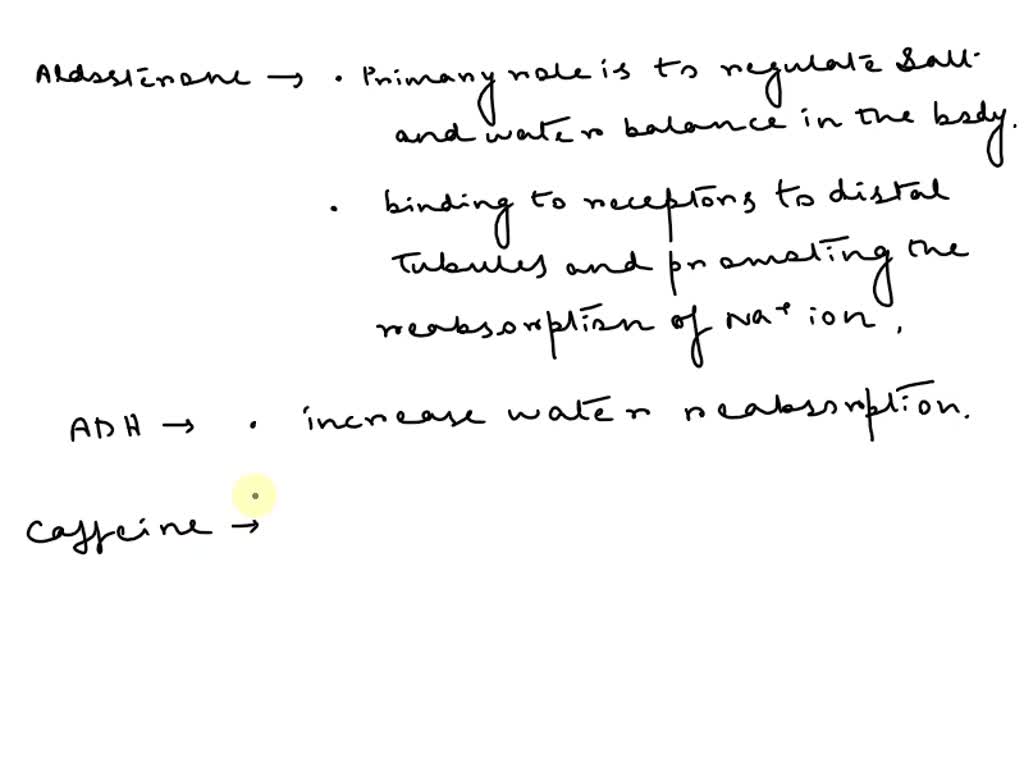 Aldosterone → · Primary role is to regulate Salt
and water balance in the body.
· binding to receptors to distal
Tubules and promoting the
reabsorption of Na+ ion.
ADH → · increase water reabsorption.
Caffeine →